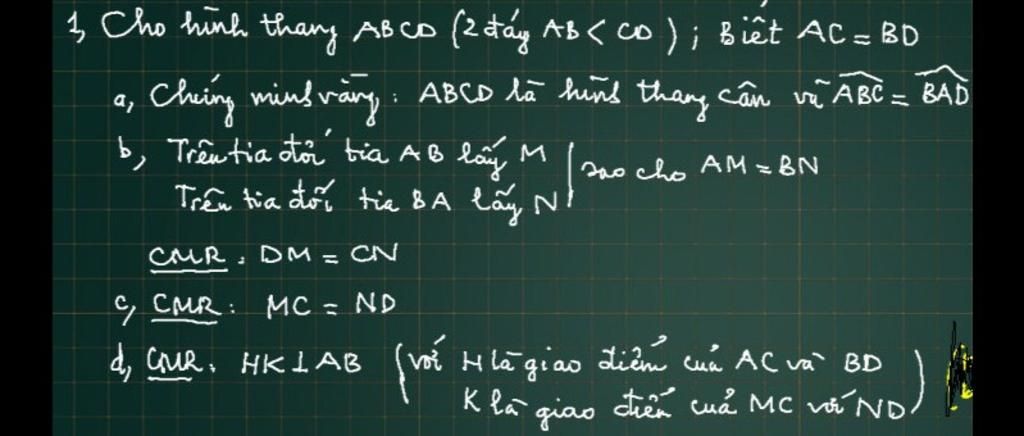 1, Cho hình thang ABCD (2 đáy AB < CD); Biết AC = BD
a, Chứng minh rằng: ABCD là hình thang cân và \widehat{ABC} = \widehat{BAD}
b, Trên tia đối tia AB lấy M | sao cho AM = BN
Trên tia đối tia BA lấy N |
CMR: DM = CN
c, CMR: MC = ND
d, CMR: HK ⊥ AB (với H là giao điểm của AC và BD
K là giao điểm của MC với ND)